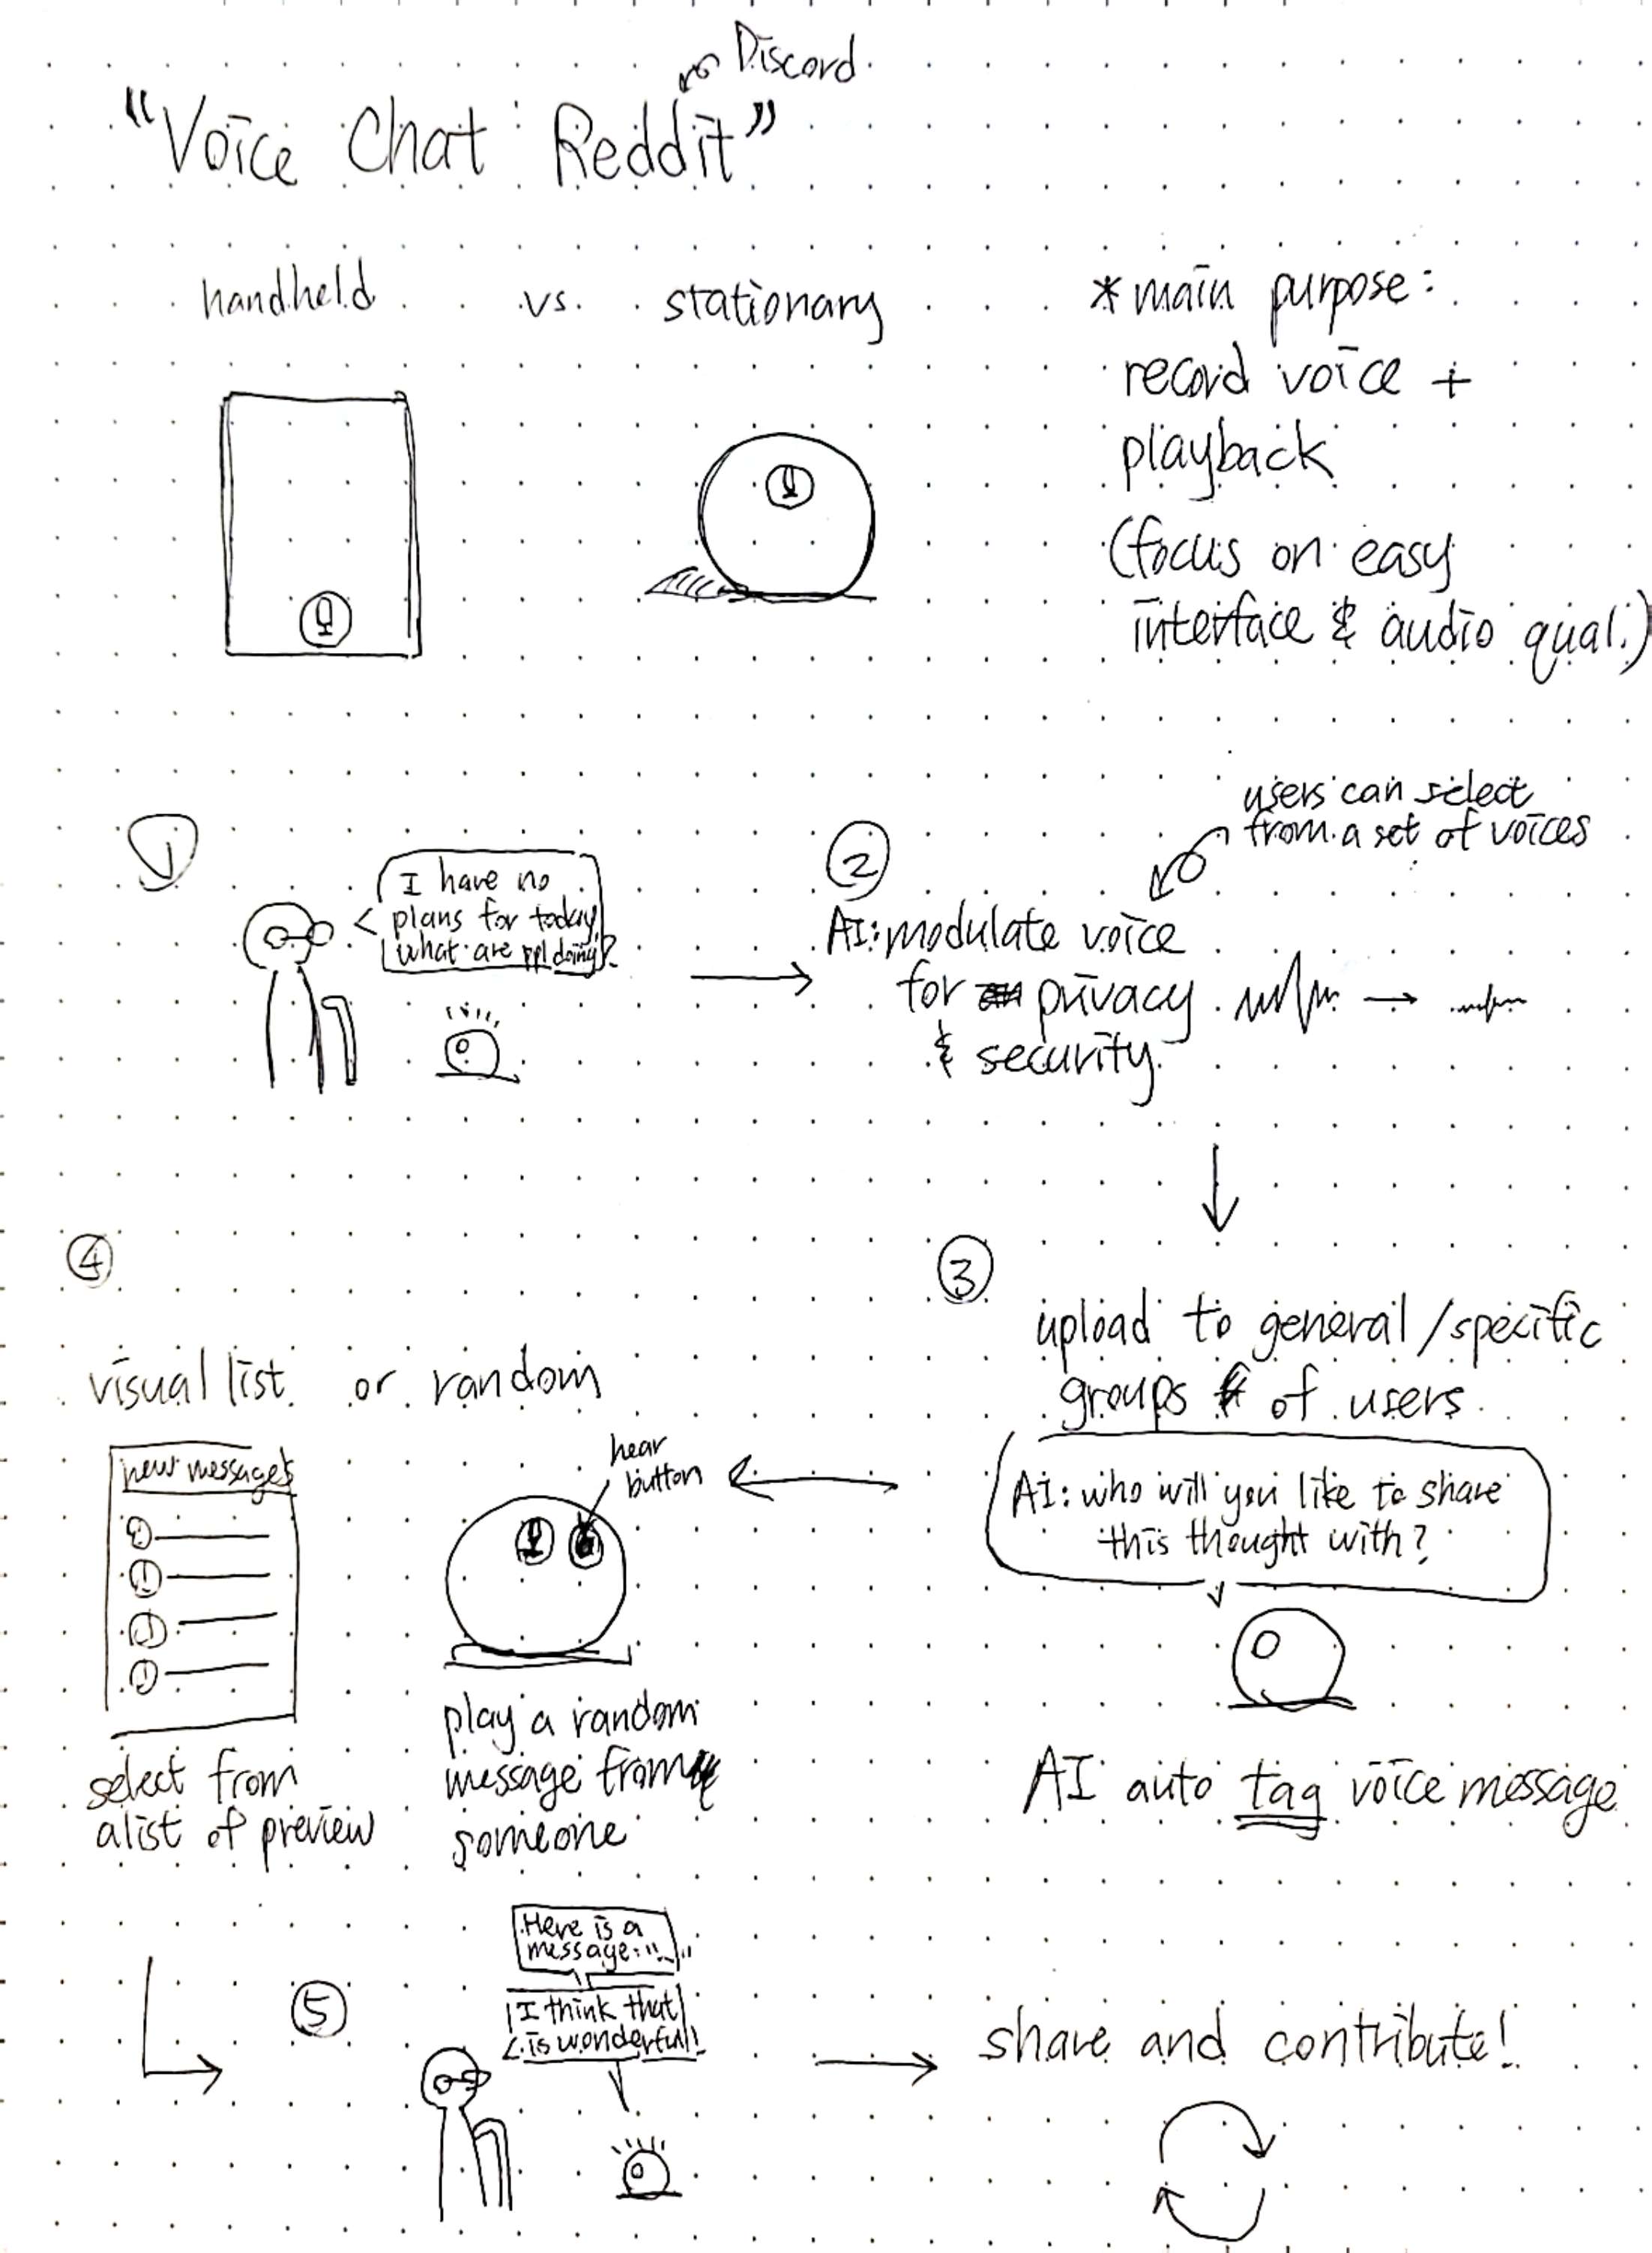 Discord
"Voice Chat Reddit"
handheld vs. stationary
*main purpose:
record voice +
playback
(focus on easy
interface & audio qual.)
1
I have no
plans for today,
what are ppl doing?
2
users can select
from a set of voices
AI: modulate voice
for privacy
& security
3
upload to general/specific
groups of users
AI: who will you like to share
this thought with?
AI auto tag voice message
4
visual list or random
new messages
select from
a list of preview
hear
button
play a random
message from
someone
5
Here is a
message: "..."
I think that
is wonderful!
share and contribute!